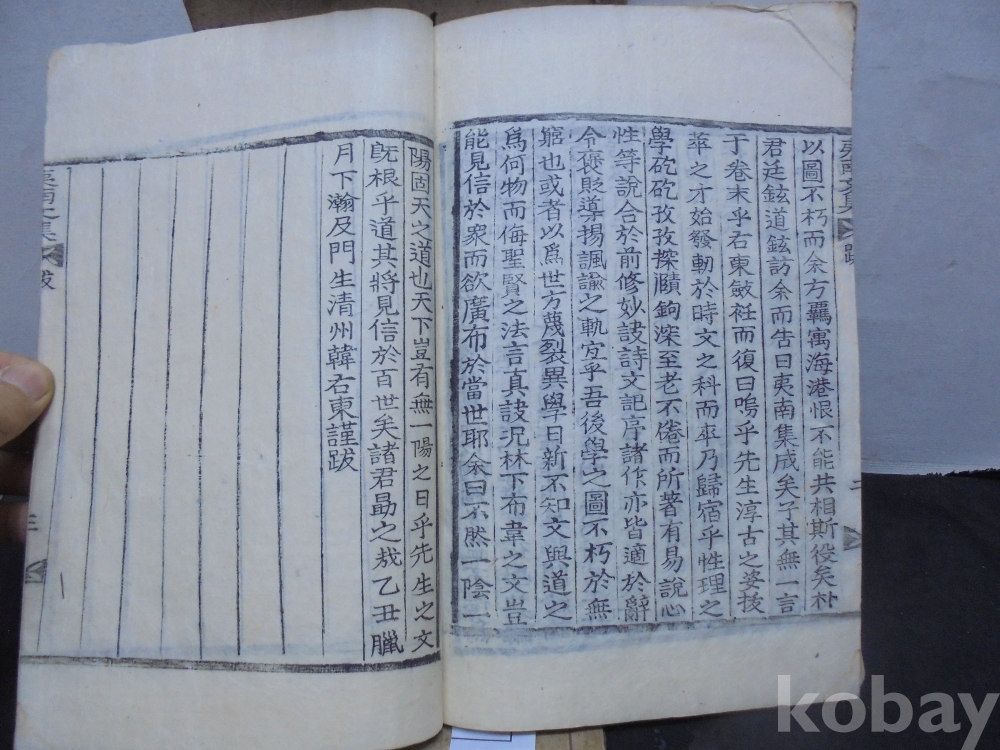 以圖不朽而余方羈寓海港恨不能共相斯役矣朴
君廷鉉道鉉訪余而告曰夷南集成矣子其無一言
于卷末乎右東斂衽而復曰嗚乎先生淳古之姿拔
萃之才始發軔於時文之科而卒乃歸宿乎性理之
學矻矻孜孜探賾鉤深至老不倦而所著有易說心
性等說合於前修妙諦詩文記序諸作亦皆適於辭
令褒貶導揚諷諭之軌宜乎吾後學之圖不朽於無
窮也或者以爲世方蔑裂異學日新不知文與道之
爲何物而侮聖賢之法言真諦况林下布韋之文豈
能見信於衆而欲廣布於當世耶余曰不然一陰一
陽固天之道也天下豈有無一陽之日乎先生之文
旣根乎道其將見信於百世矣諸君勗之哉乙丑臘
月下瀚及門生清州韓右東謹跋
夷南文集
跋
二
夷南文集
跋
三
kobay